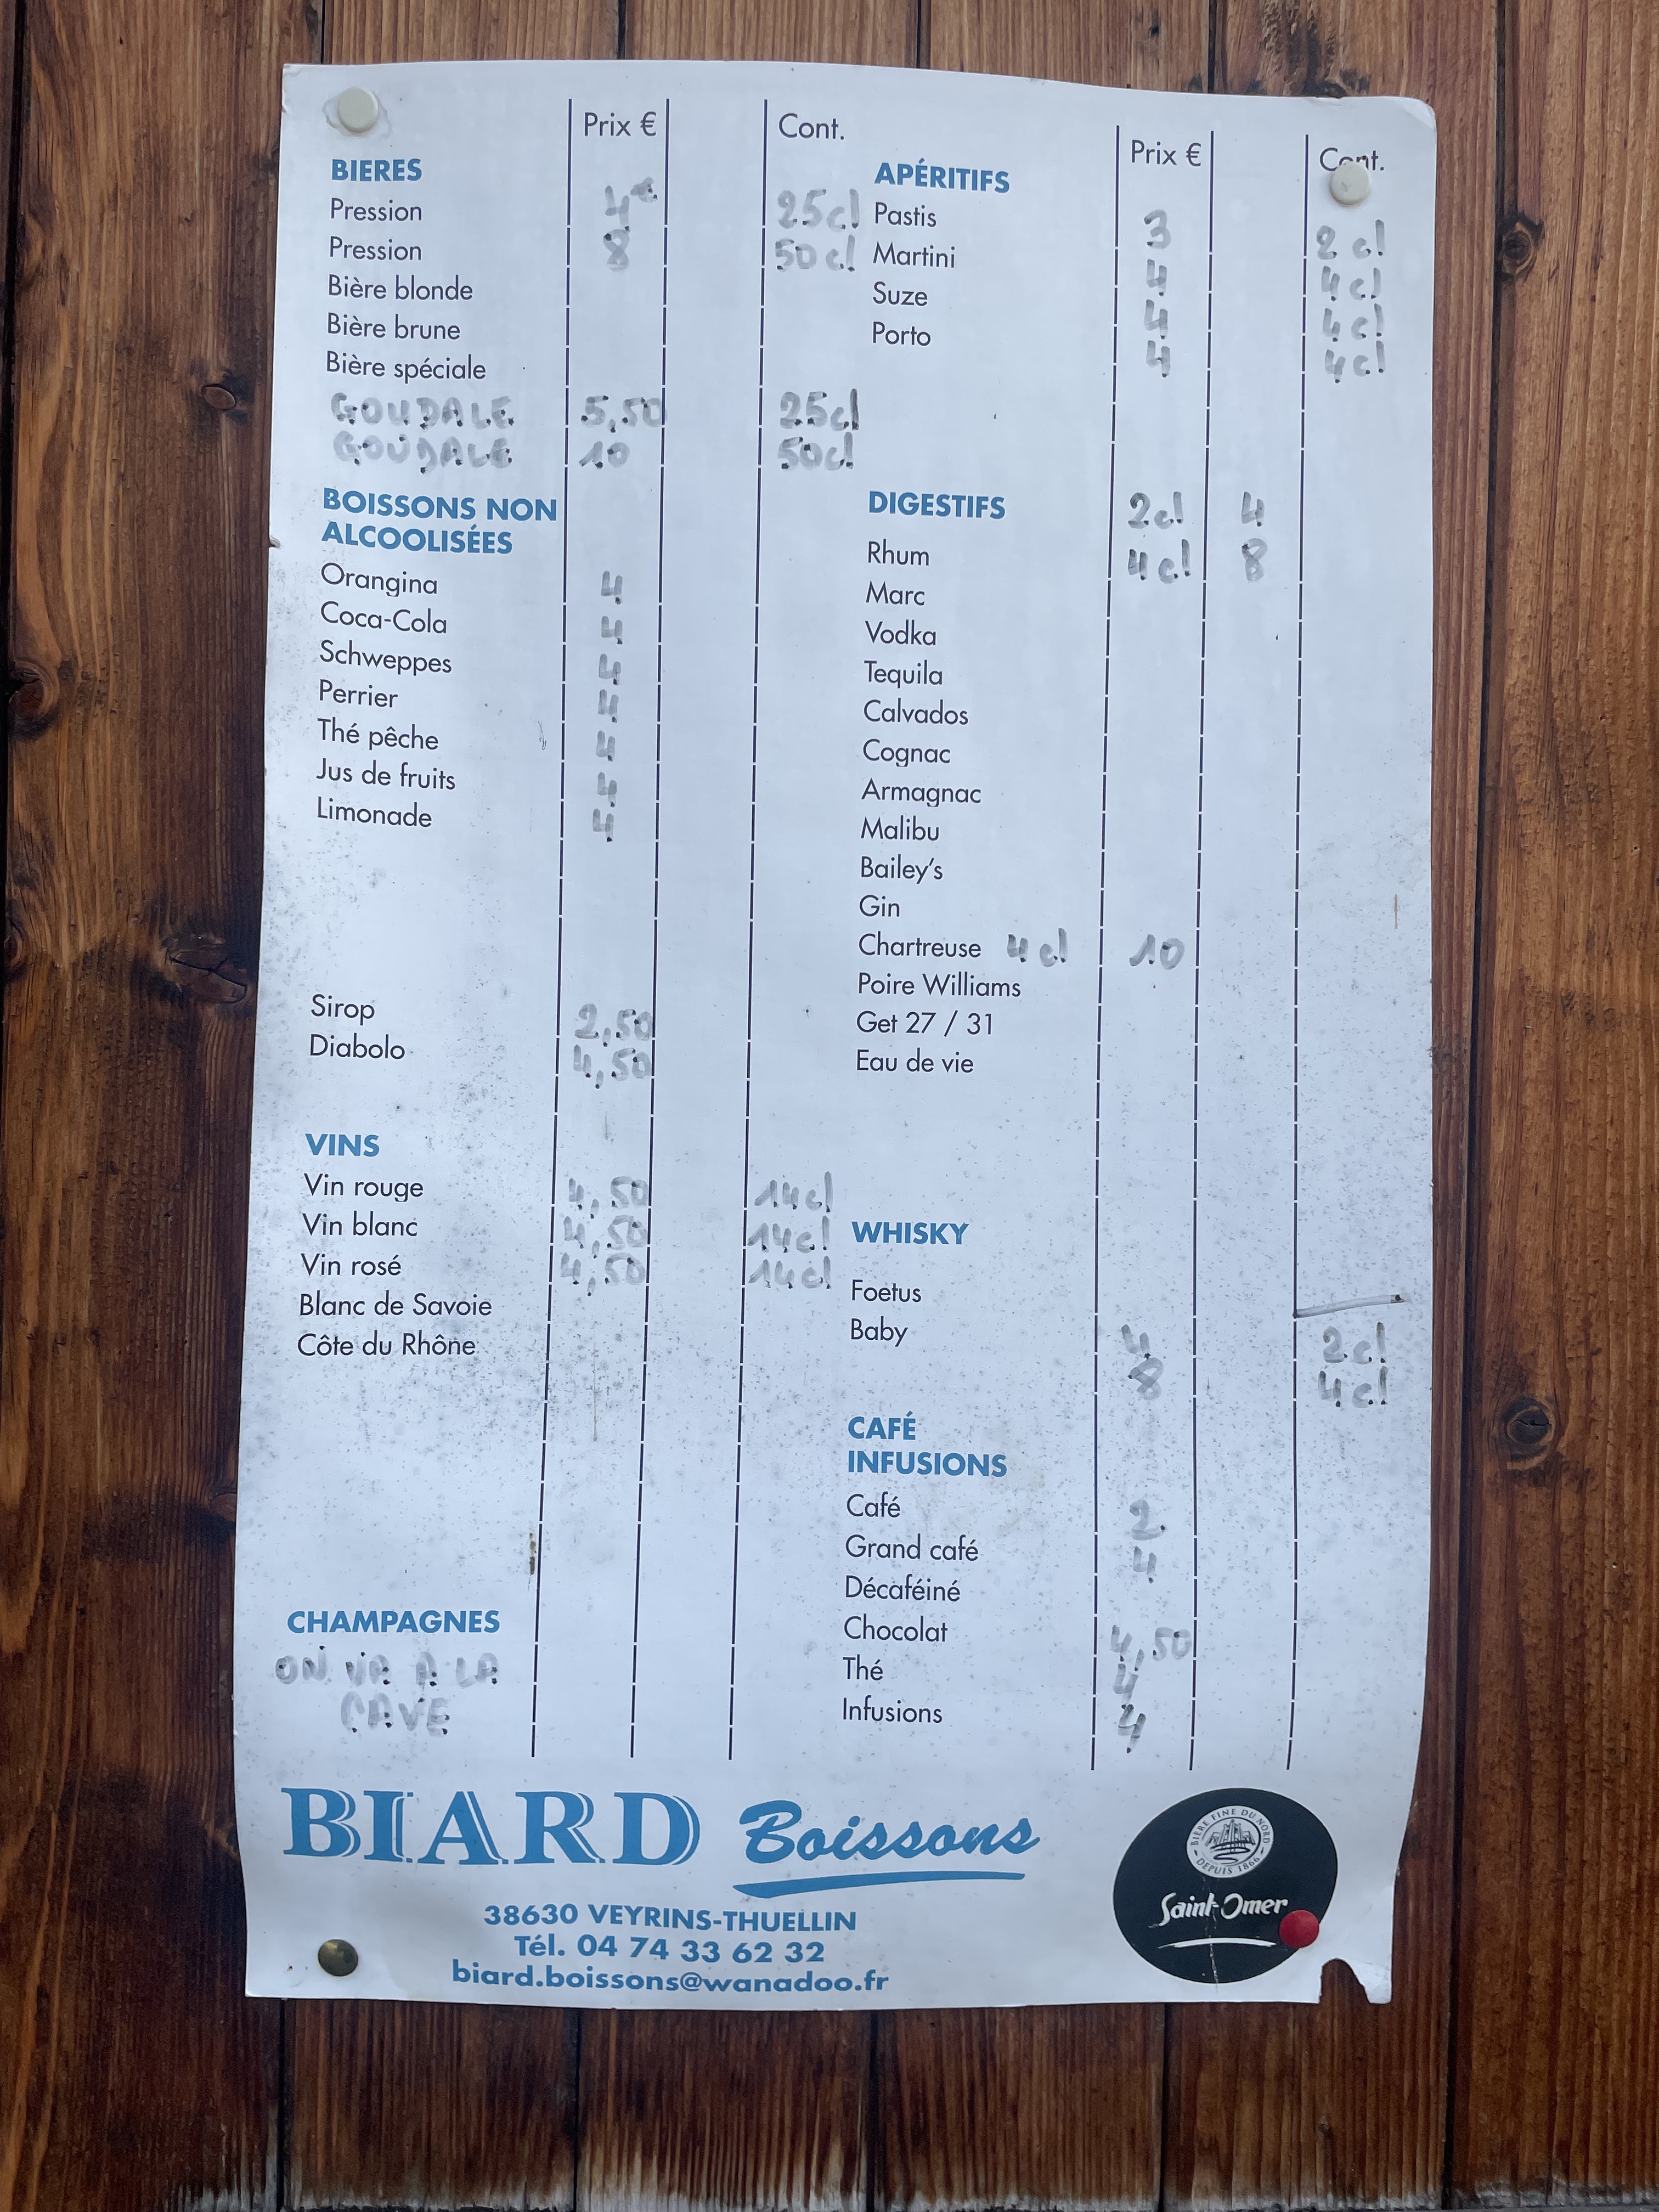 Prix € Cont.
BIERES
Pression 4€ 25cl
Pression 8 50cl
Bière blonde
Bière brune
Bière spéciale
GOUDALE 5,50 25cl
GOUDALE 10 50cl
BOISSONS NON
ALCOOLISÉES
Orangina 4
Coca-Cola 4
Schweppes 4
Perrier 4
Thé pêche 4
Jus de fruits 4
Limonade 4
Sirop 2,50
Diabolo 4,50
VINS
Vin rouge 4,50 14cl
Vin blanc 4,50 14cl
Vin rosé 4,50 14cl
Blanc de Savoie
Côte du Rhône
CHAMPAGNES
ON VA A LA
CAVE
Prix € Cont.
APÉRITIFS
Pastis 3 2cl
Martini 4 4cl
Suze 4 4cl
Porto 4 4cl
DIGESTIFS 2cl 4
Rhum 4cl 8
Marc
Vodka
Tequila
Calvados
Cognac
Armagnac
Malibu
Bailey's
Gin
Chartreuse 4cl 10
Poire Williams
Get 27 / 31
Eau de vie
WHISKY
Foetus
Baby 4 2cl
8 4cl
CAFÉ
INFUSIONS
Café 2
Grand café 4
Décaféiné
Chocolat 4,50
Thé 4
Infusions 4
BIARD Boissons
38630 VEYRINS-THUELLIN
Tél. 04 74 33 62 32
biard.boissons@wanadoo.fr
BIÈRE FINE DU NORD
DEPUIS 1866
Saint-Omer